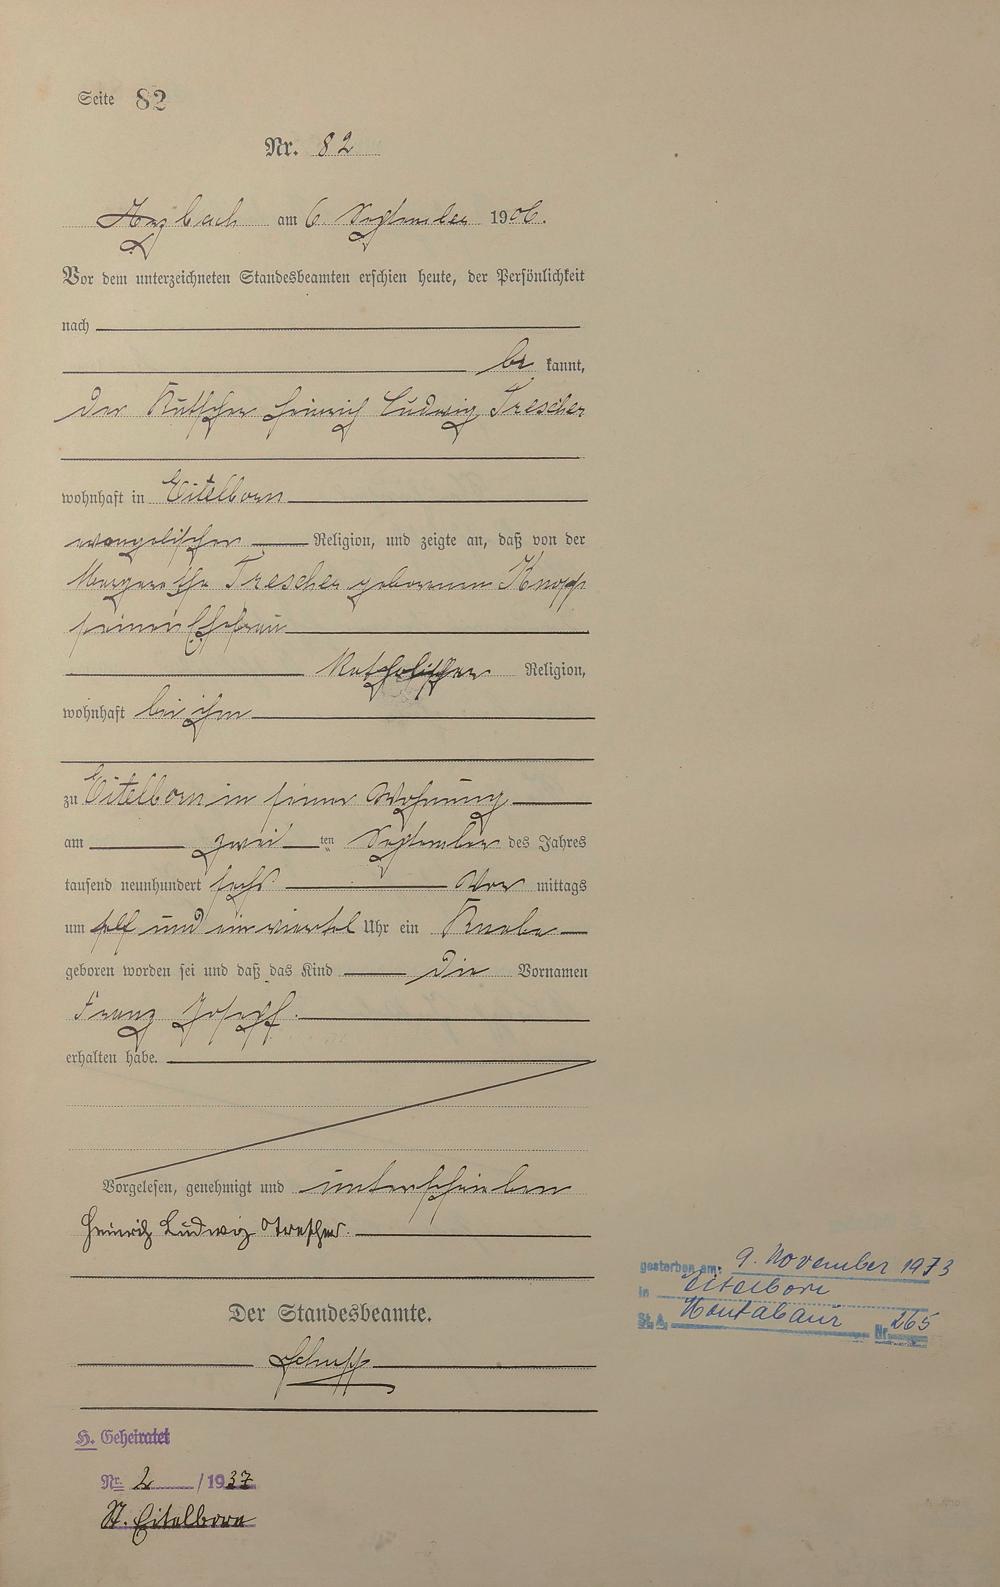 Seite 82
Nr. 82
Arzbach am 6 September 1906.
Vor dem unterzeichneten Standesbeamten erschien heute, der Persönlichkeit
nach
be kannt,
der Kutscher Heinrich Ludwig Trescher
wohnhaft in Eitelborn
evangelischer Religion, und zeigte an, daß von der
Margarethe Trescher geborenen Knopp
seiner Ehefrau
katholischer Religion,
wohnhaft bei ihm
zu Eitelborn in seiner Wohnung
am zwei ten September des Jahres
tausend neunhundert sechs Vor mittags
um elf und ein viertel Uhr ein Knabe
geboren worden sei und daß das Kind die Vornamen
Franz Joseph.
erhalten habe.
Vorgelesen, genehmigt und unterschrieben
Heinrich Ludwig Trescher.
gestorben am: 9. November 1973
in Eitelborn
St. A. Montabaur Nr. 265
Der Standesbeamte.
H. Geheiratet
Nr. 2 /1937
St. Eitelborn